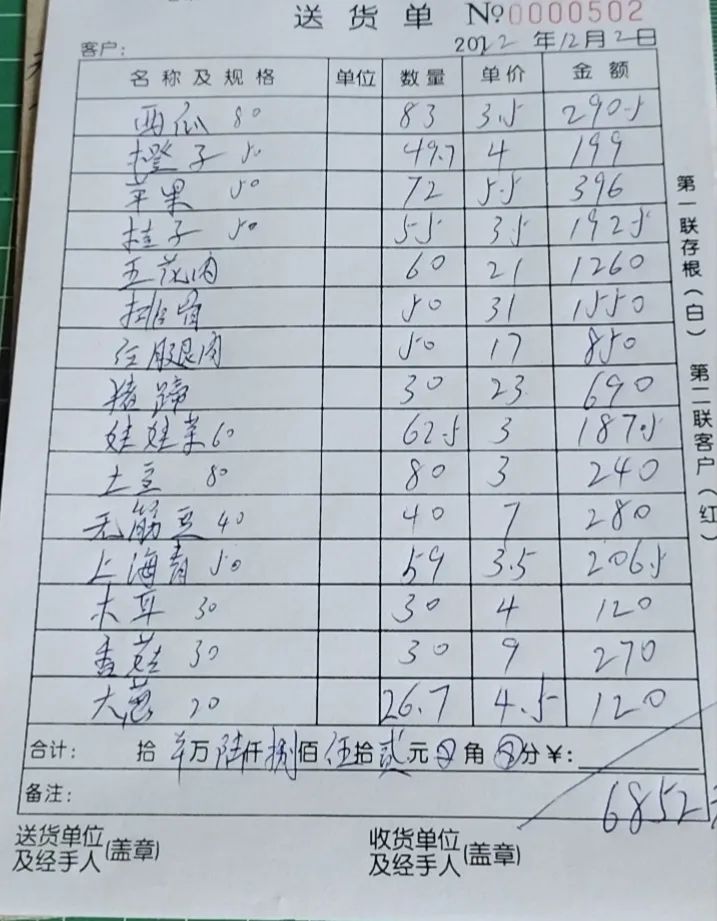 送货单 №0000502
客户: 2022年12月2日
名称及规格 单位 数量 单价 金额
西瓜 80 83 3.5 290.5
橙子 50 49.7 4 199
苹果 50 72 5.5 396
桂子 50 55 35 1925
五花肉 60 21 1260
排骨 50 31 1550
后腿肉 50 17 850
猪蹄 30 23 690
娃娃菜 60 62.5 3 187.5
土豆 80 80 3 240
无筋豆 40 40 7 280
上海青 50 59 3.5 206.5
木耳 30 30 4 120
香菇 30 30 9 270
大葱 20 26.7 4.5 120
合计: 拾 万陆仟捌佰伍拾贰元 角 分¥:
备注: 6852
送货单位及经手人(盖章) 收货单位及经手人(盖章)
第一联存根(白) 第二联客户(红)